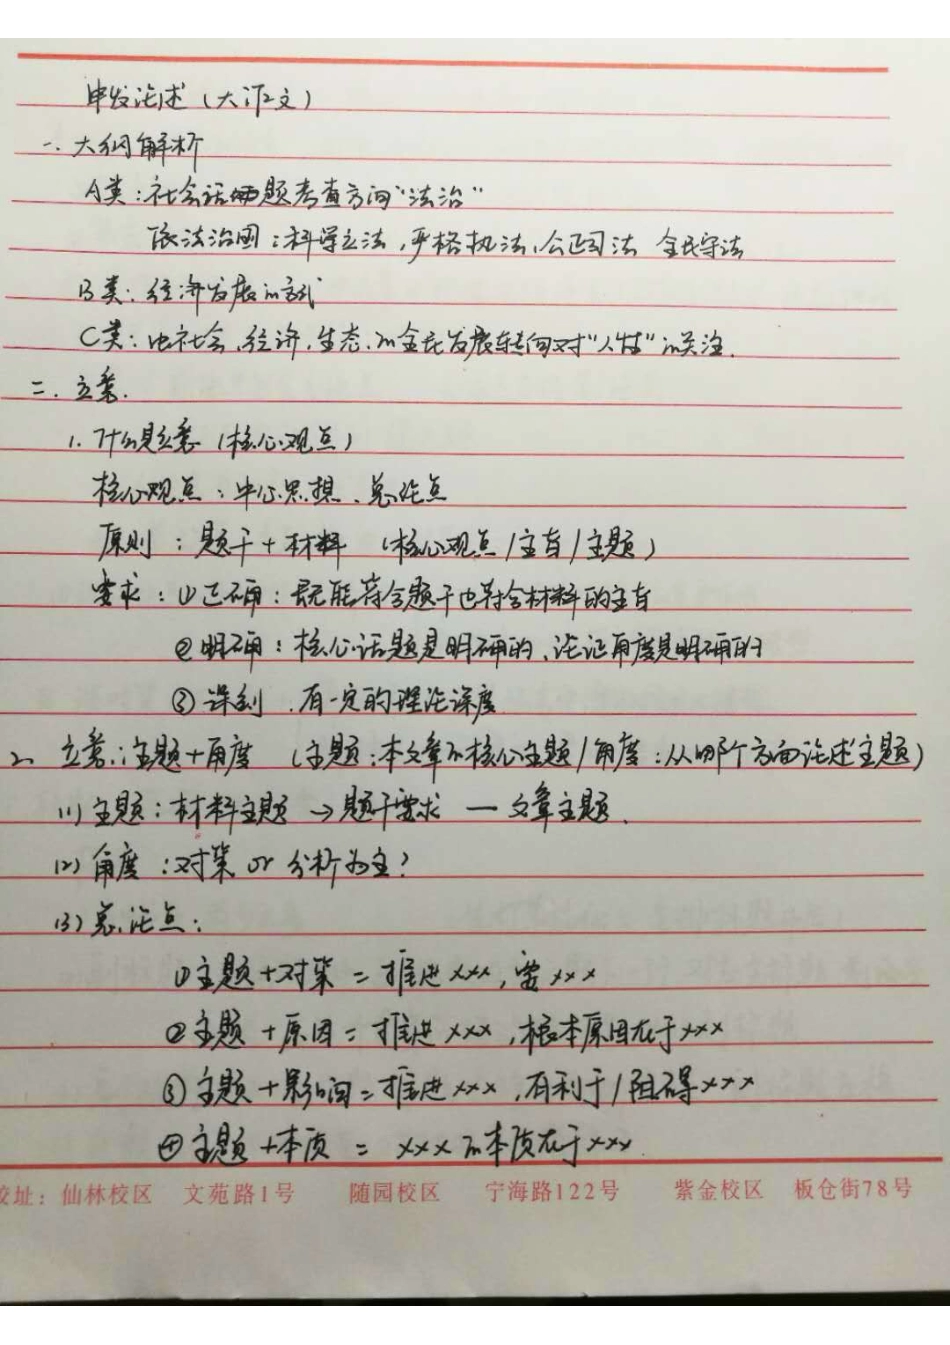 申发论述（大作文）
一、大纲解析
A类：社会话题考查方向“法治”
依法治国：科学立法，严格执法，公正司法 全民守法
B类：经济发展的方式
C类：由社会、经济、生态、的全民发展转向对“人性”的关注.
二、立意.
1. 什么是立意（核心观点）
核心观点：中心思想、总论点
原则：题干+材料（核心观点/主旨/主题）
要求：①正确：既能符合题干也符合材料的主旨
②明确：核心话题是明确的、论证角度是明确的
③深刻、有一定的理论深度
2、立意：主题+角度（主题：本文章的核心主题/角度：从哪个方面论述主题）
(1) 主题：材料主题→题干要求—文章主题.
(2) 角度：对策 or 分析为主？
(3) 总论点：
①主题+对策=推进×××，需×××
②主题+原因=推进×××，根本原因在于×××
③主题+影响=推进×××，有利于/阻碍×××
④主题+本质=×××的本质在于×××.
校址：仙林校区 文苑路1号 随园校区 宁海路122号 紫金校区 板仓街78号